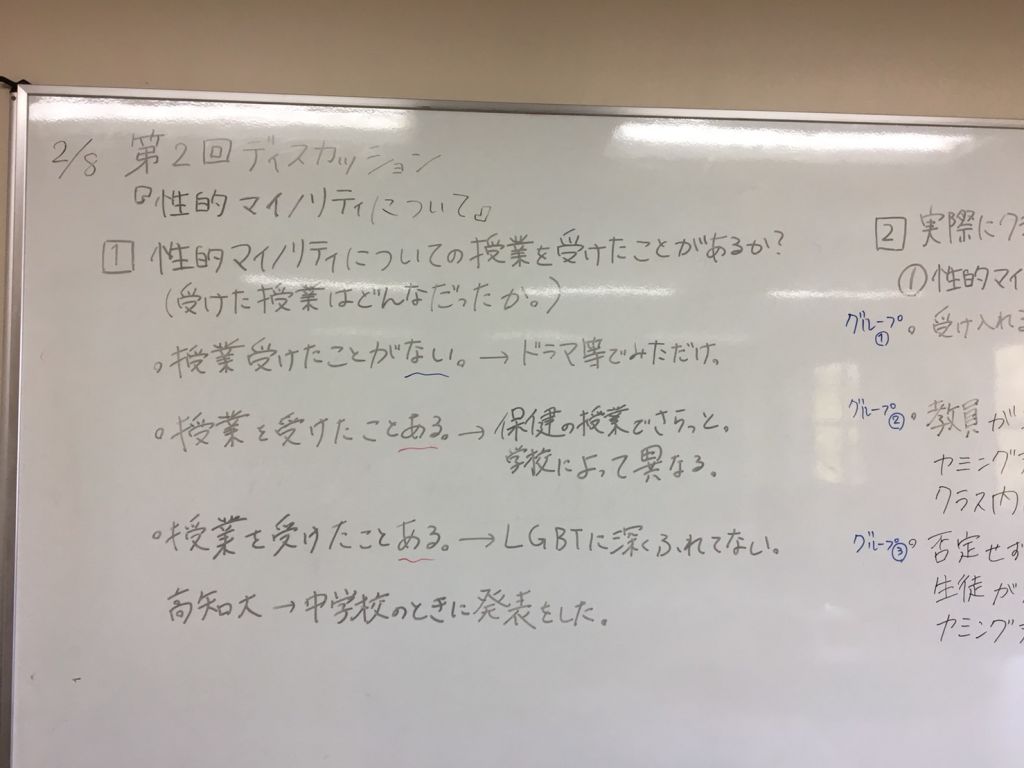 2/8 第2回ディスカッション
『性的マイノリティについて』
1 性的マイノリティについての授業を受けたことがあるか?
(受けた授業はどんなだったか。)
○授業受けたことがない。→ドラマ等でみただけ。
○授業を受けたことある。→保健の授業でさらっと。
学校によって異なる。
○授業を受けたことある。→LGBTに深くふれてない。
高知大→中学校のときに発表をした。
2 実際にク
①性的マイ
グループ① ○受け入れる
グループ② ○教員が
カミング
クラス内
グループ③ ○否定せず
生徒が
カミング